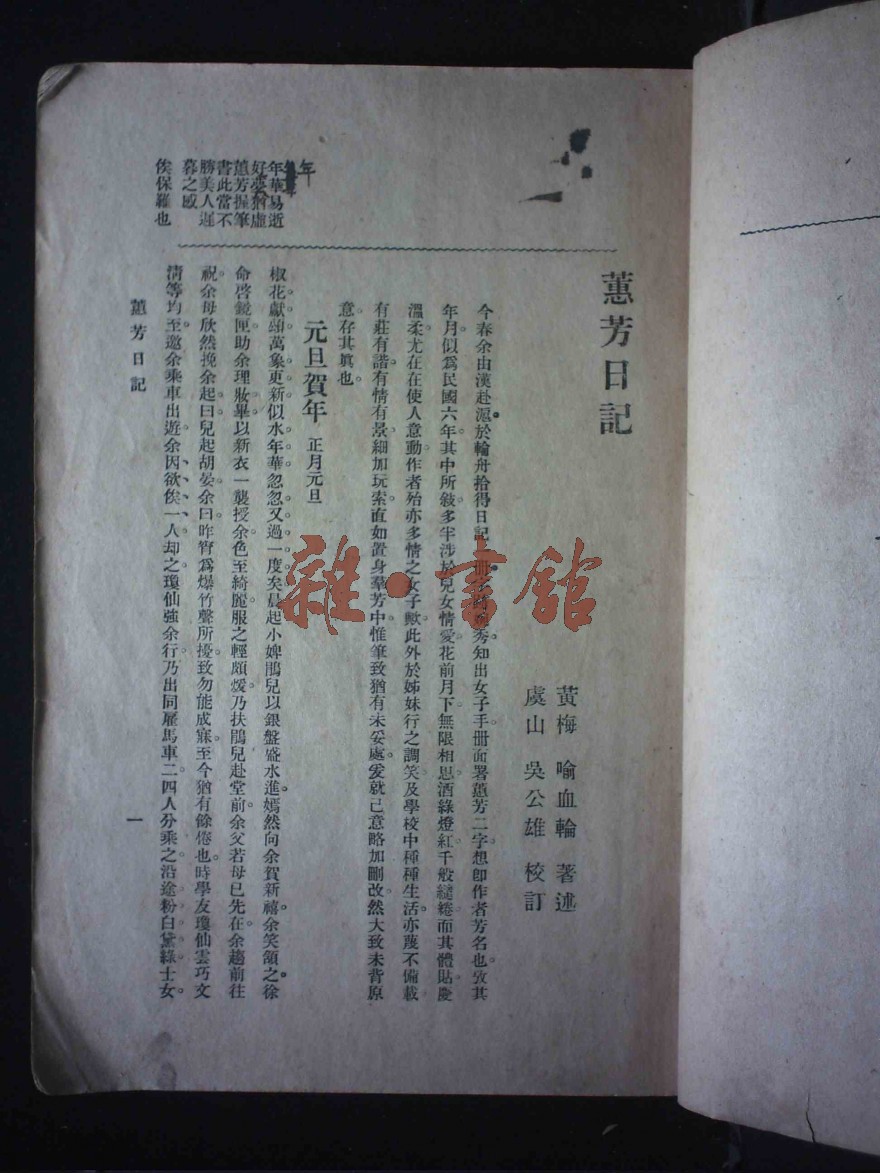 蕙芳日記
黃梅 喻血輪 著述
虞山 吳公雄 校訂
今春余由漢赴滬於輪舟拾得日記一冊秀知出女子手冊面署蕙芳二字想卽作者芳名也攷其
年月似爲民國六年其中所敍多半涉於兒女情愛花前月下無限相思酒綠燈紅千般繾綣而其體貼慶
溫柔尤在在使人意動作者殆亦多情之女子歟此外於姊妹行之調笑及學校中種種生活亦蔑不備載
有莊有諧有情有景細加玩索直如置身羣芳中惟筆致猶有未妥處爰就己意略加刪改然大致未背原
意存其眞也
元旦賀年 正月元旦
椒花獻頌萬象更新似水年華忽忽又過一度矣晨起小婢鵑兒以銀盤盛水進嫣然向余賀新禧余笑頷之徐
命啓鏡匣助余理妝畢以新衣一襲授余色至綺麗服之輕頗煖乃扶鵑兒赴堂前余父若母已先在余趨前往
祝余母欣然挽余起曰兒起胡晏余曰昨宵爲爆竹聲所擾致勿能成寐至今猶有餘倦也時學友瓊仙雲巧文
淸等均至邀余乘車出遊余因欲俟一人却之瓊仙強余行乃出同雇馬車二四人分乘之沿途粉白黛綠士女
年華易逝
好夢猶虛
蕙芳握筆
書此當不
勝美人遲
暮之感
俟保羅也
蕙芳日記
一
雜·書館